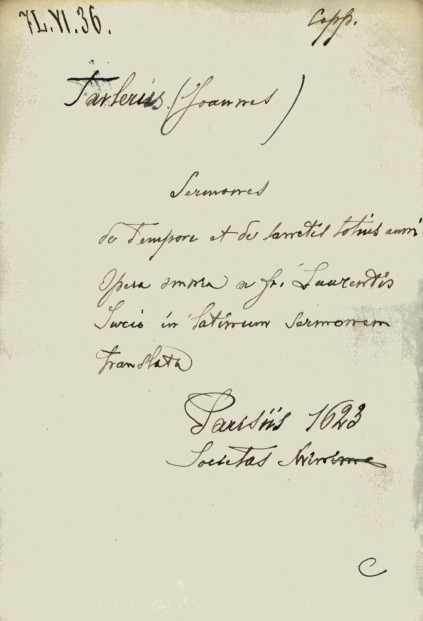 7L.VI.36.
Capp.
Taulerius (Joannes)
Sermones
de Tempore et de Sanctis totius anni
Opera omnia a fr. Laurentio
Surio in latinum sermonem
translata
Parisiis 1623
Societas Minima
C